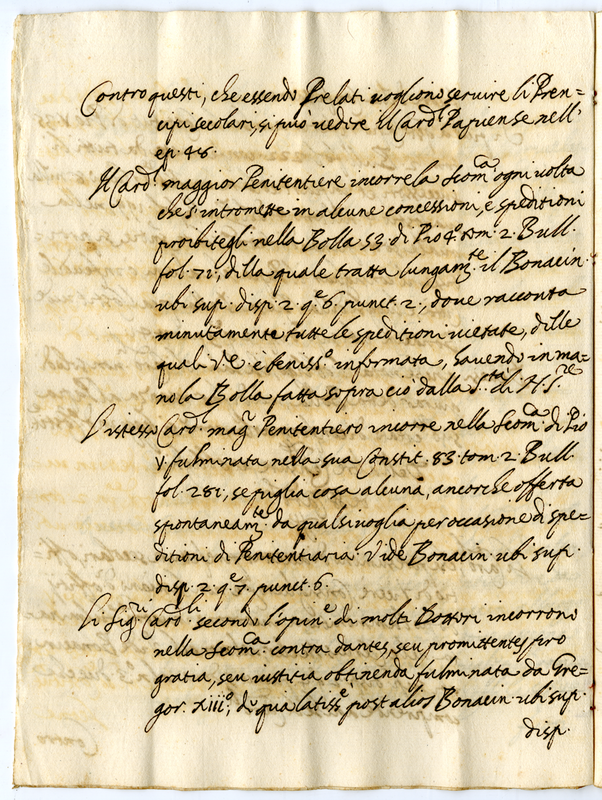 Contro questi, che essendo Prelati vogliono servire li Pren=
cipi secolari, si può vedere il Card.l Papiense nell'
ep. 46.
Il Card.l maggior Penitentiere incorre la scom.a ogni volta
che s'intromette in alcune concessioni, e speditioni
proibitegli nella Bolla 53. di Pio 4.o tom. 2. Bull.
fol. 71, della quale tratta lungam.te il Bonacin.
ubi sup. disp. 2. q.e 6. punct. 2., dove racconta
minutamente tutte le speditioni vietate, delle
quali V.E. è beniss.o informata, havendo in ma=
no la Bolla fatta sopra ciò dalla S.tà di N. S.re
L'istesso Card.l mag.r Penitentiero incorre nella scom.a di Pio
V. fulminata nella sua Constit. 83. tom. 2. Bull.
fol. 281, se piglia cosa alcuna, ancorche offerta
spontaneam.te da qualsivoglia per occasione di spe=
ditioni di Penitentiaria. Vide Bonacin. ubi sup.
disp. 2. q.e 7. punct. 6.
Li Sig.ri Card.li secondo l'opin.e di molti Dottori incorrono
nella scom.a contra dantes, seu promittentes pro
gratia, seu iustitia obtinenda fulminata da Gre=
gor. XIII.o, de qua latiss.e post alios Bonacin. ubi sup.
disp.